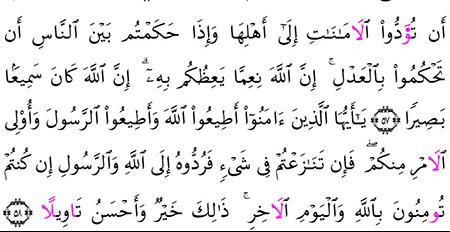 أَن تُوَ۬دُّواْ الَامَٰنَٰتِ إِلَىٰٓ أَهْلِهَا وَإِذَا حَكَمْتُم بَيْنَ النَّاسِ أَن
تَحْكُمُواْ بِالْعَدْلِۖ إِنَّ اللَّهَ نِعِمَّا يَعِظُكُم بِهِۦٓۖ إِنَّ اللَّهَ كَانَ سَمِيعَۢا
بَصِيرٗا ﴿٥٧﴾ يَٰٓأَيُّهَا الَّذِينَ ءَامَنُوٓاْ أَطِيعُواْ اللَّهَ وَأَطِيعُواْ الرَّسُولَ وَأُوْلِي
الَامْرِ مِنكُمْۖ فَإِن تَنَٰزَعْتُمْ فِي شَيْءٖ فَرُدُّوهُ إِلَى اللَّهِ وَالرَّسُولِ إِن كُنتُمْ
تُومِنُونَ بِاللَّهِ وَالْيَوْمِ الَاخِرِۖ ذَٰلِكَ خَيْرٞ وَأَحْسَنُ تَاوِيلًا ﴿٥٨﴾